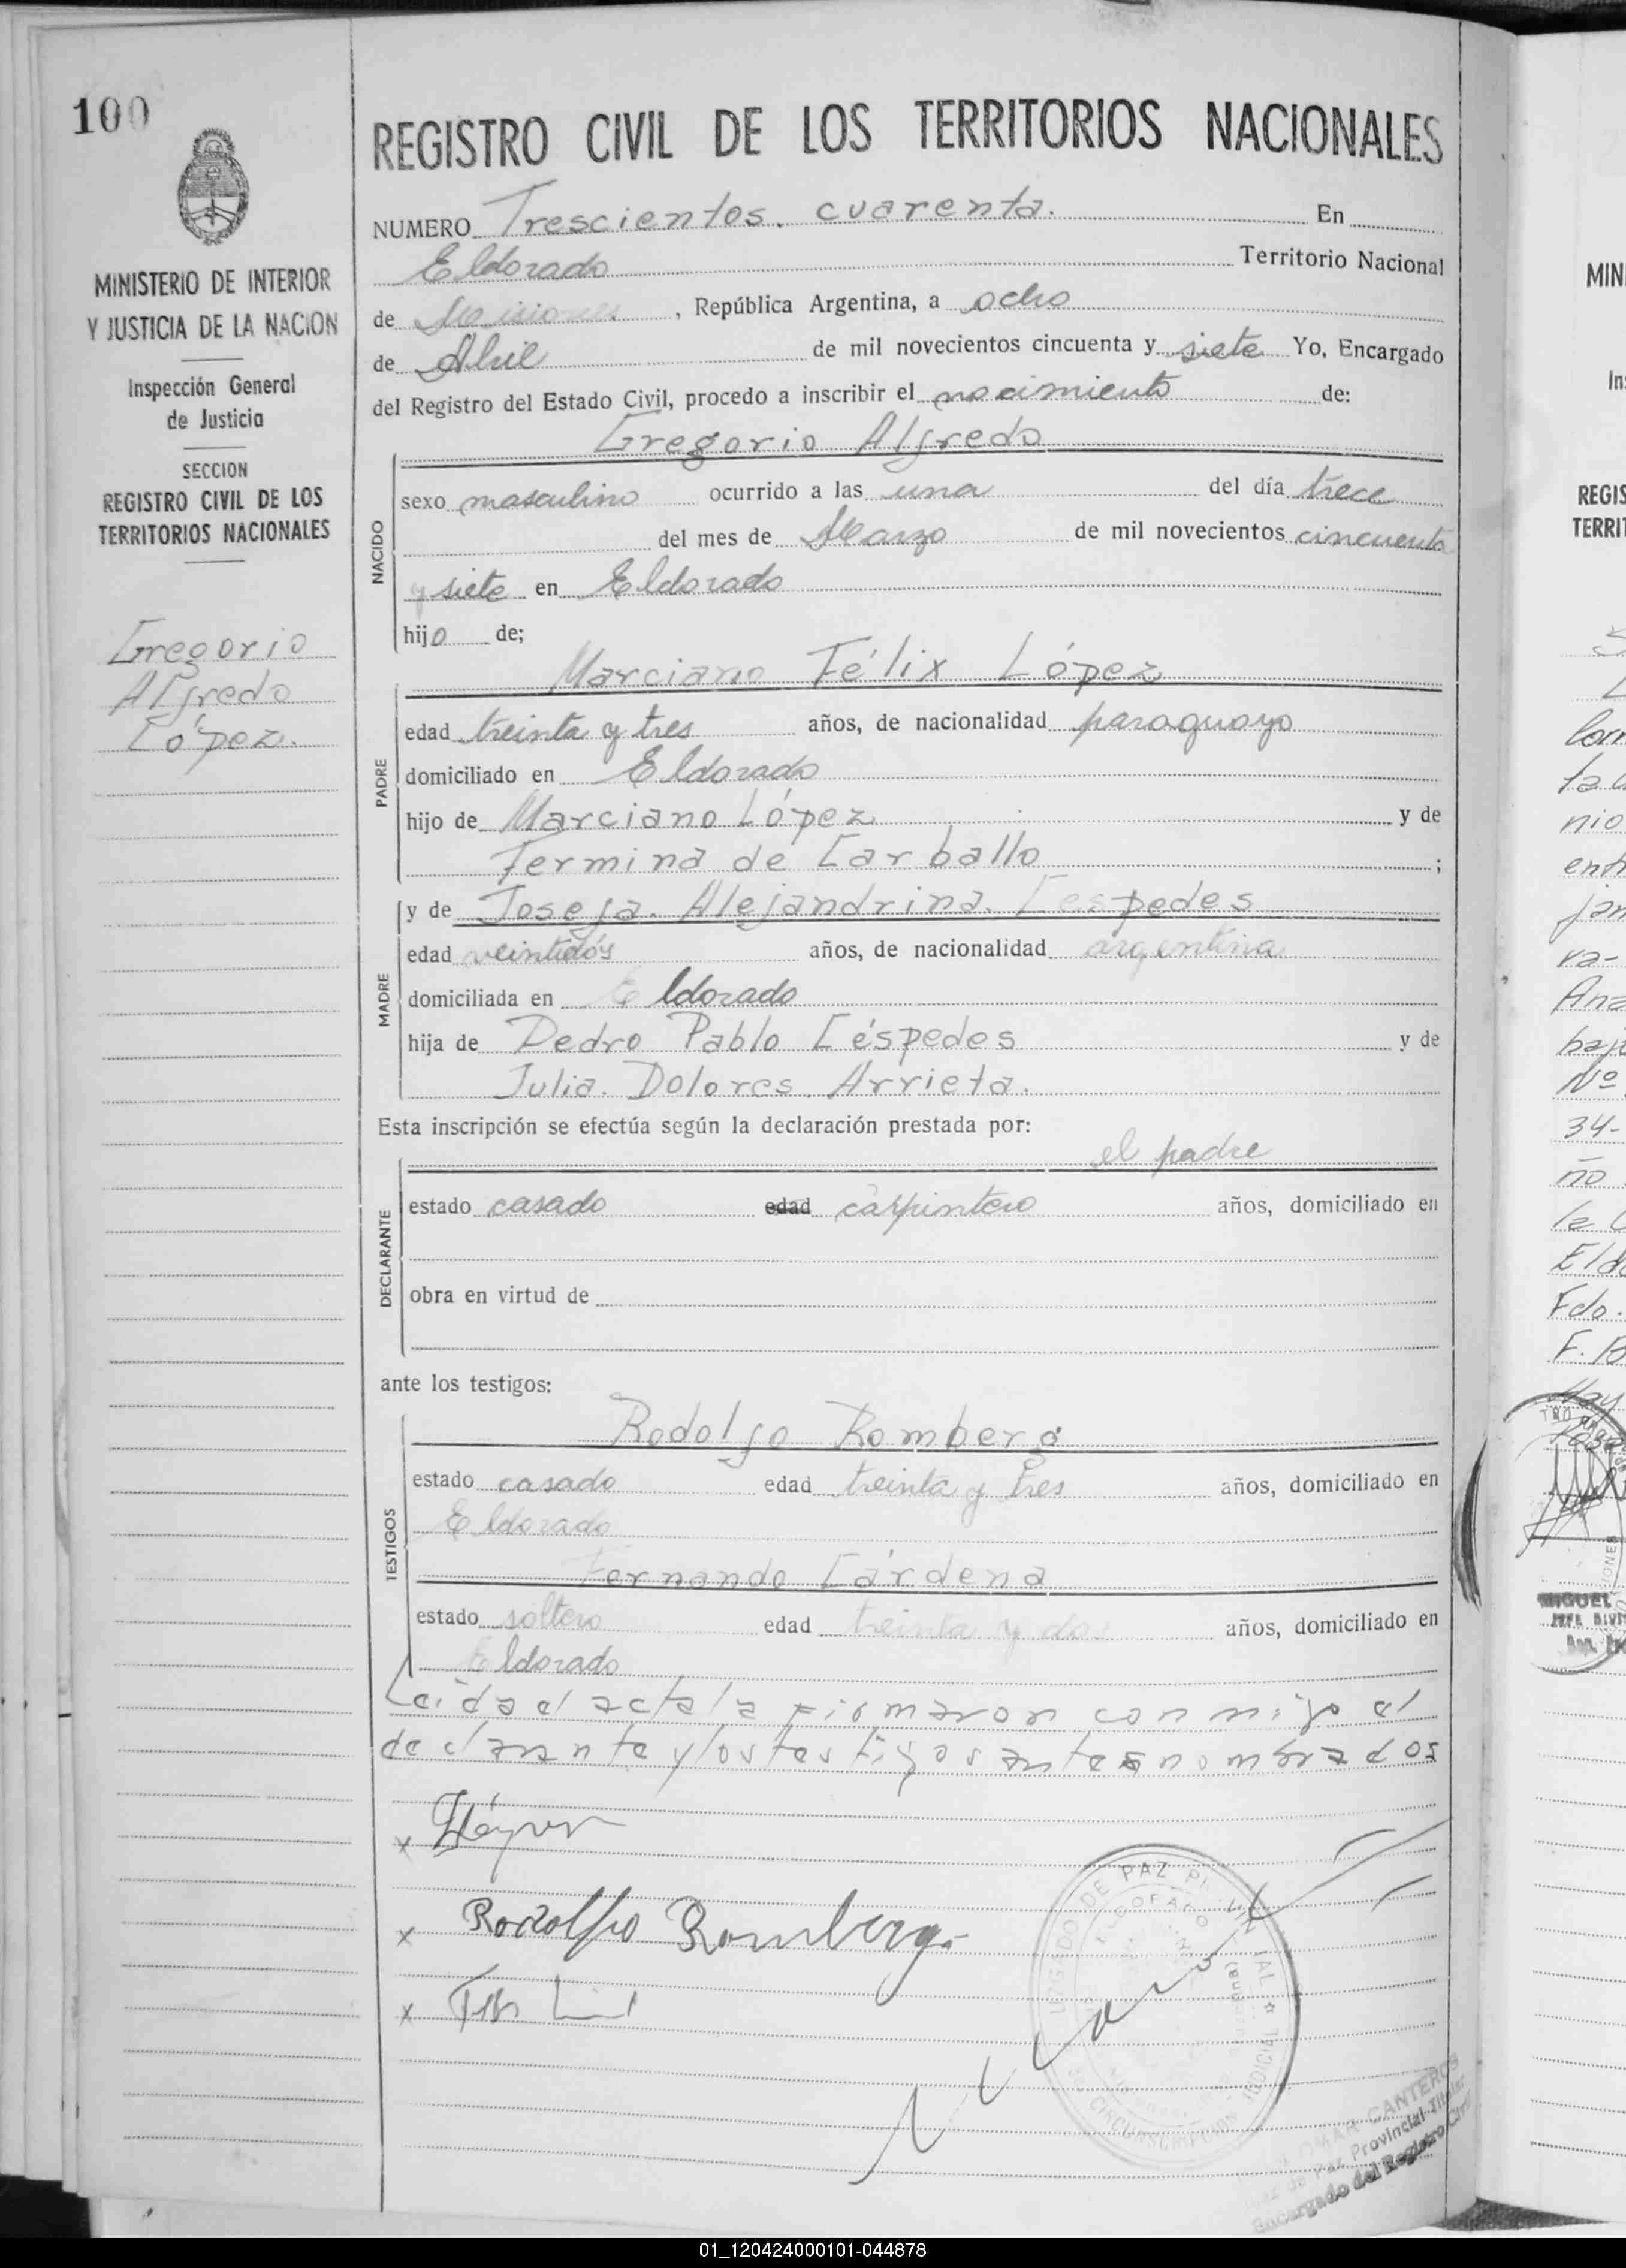 100
MINISTERIO DE INTERIOR
Y JUSTICIA DE LA NACION
Inspección General
de Justicia
SECCION
REGISTRO CIVIL DE LOS
TERRITORIOS NACIONALES
Gregorio
Alfredo
López.
REGISTRO CIVIL DE LOS TERRITORIOS NACIONALES
NUMERO Trescientos. cuarenta. En
Eldorado Territorio Nacional
de Misiones, República Argentina, a ocho
de Abril de mil novecientos cincuenta y siete Yo, Encargado
del Registro del Estado Civil, procedo a inscribir el nacimiento de:
Gregorio Alfredo
NACIDO
sexo masculino ocurrido a las una del día trece
del mes de Marzo de mil novecientos cincuenta
y siete en Eldorado
hijo de;
Marciano Félix López
PADRE
edad treinta y tres años, de nacionalidad paraguayo
domiciliado en Eldorado
hijo de Marciano López y de
Fermina de Carballo ;
MADRE
y de Josefa. Alejandrina. Cespedes
edad veintidós años, de nacionalidad argentina
domiciliada en Eldorado
hija de Pedro Pablo Céspedes y de
Julia. Dolores. Arrieta.
Esta inscripción se efectúa según la declaración prestada por:
el padre
DECLARANTE
estado casado edad carpintero años, domiciliado en
obra en virtud de
ante los testigos:
Rodolfo Romberg
TESTIGOS
estado casado edad treinta y tres años, domiciliado en
Eldorado
Fernando Cárdena
estado soltero edad treinta y dos años, domiciliado en
Eldorado
Leida el acta la firmaron conmigo el
declarante y los testigos antes nombrados
x
x Rodolfo Romberg
x
JUZGADO DE PAZ PROVINCIAL
CIRCUNSCRIPCION JUDICIAL
OMAR CANTEROS
Juez de Paz Provincial Titular
Encargado del Registro Civil
MIN
In
REGIS
TERRI
nio
ent
jan
va-
Ana
baj
Nº
34-
ño
la
Eld
Fdo.
F. B
Hay
MIGUEL
JEFE DIVI
01_120424000101-044878